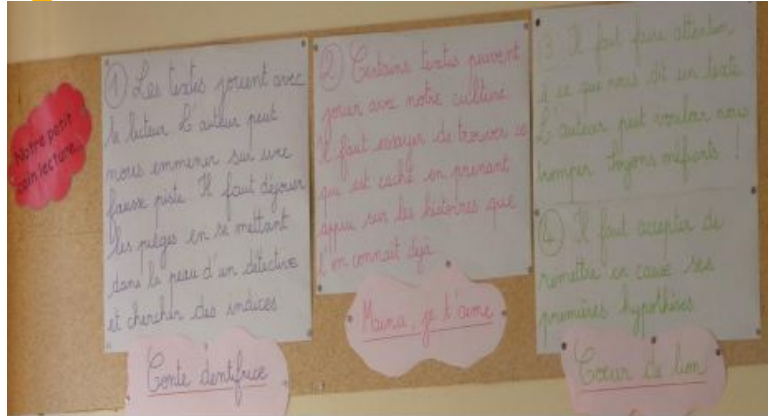 Notre petit
coin lecture...
① Les textes jouent avec
le lecteur. L'auteur peut
nous emmener sur une
fausse piste. Il faut déjouer
les pièges en se mettant
dans la peau d'un détective
et chercher des indices
Conte dentifrice
② Certains textes peuvent
jouer avec notre culture.
Il faut essayer de trouver ce
qui est caché en prenant
appui sur les histoires que
l'on connait déjà
Maina, je t'aime
3. Il faut faire attention
à ce que nous dit un texte
L'auteur peut vouloir nous
tromper Soyons méfiants !
④ Il faut accepter de
remettre en cause ses
premières hypothèses
Coeur de lion